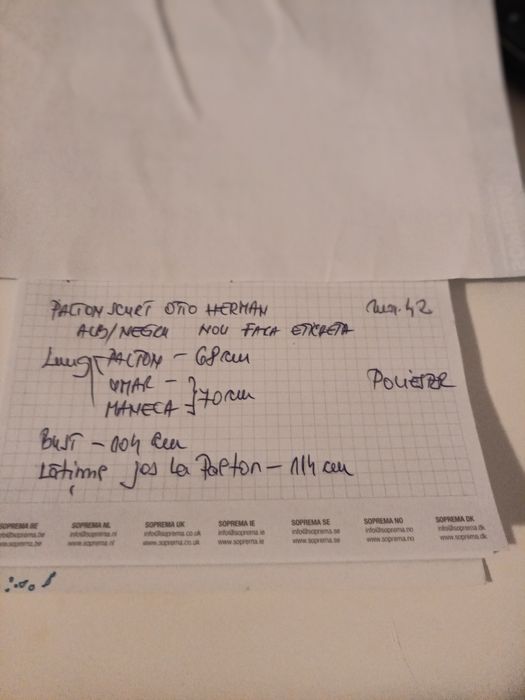 PALTON SCURT OTTO HERMAN mar. 42
ALB/NEGRU NOU FARA ETICHETA
Lung PALTON - 68 cm
UMAR -
MANECA 70 cm
POLIESTER
BUST - 104 cm
Lățime jos la Palton - 114 cm
SOPREMA BE SOPREMA NL SOPREMA UK SOPREMA IE SOPREMA SE SOPREMA NO SOPREMA DK
info@soprema.be info@soprema.nl info@soprema.co.uk info@soprema.ie info@soprema.se info@soprema.no info@soprema.dk
www.soprema.be www.soprema.nl www.soprema.co.uk www.soprema.ie www.soprema.se www.soprema.no www.soprema.dk